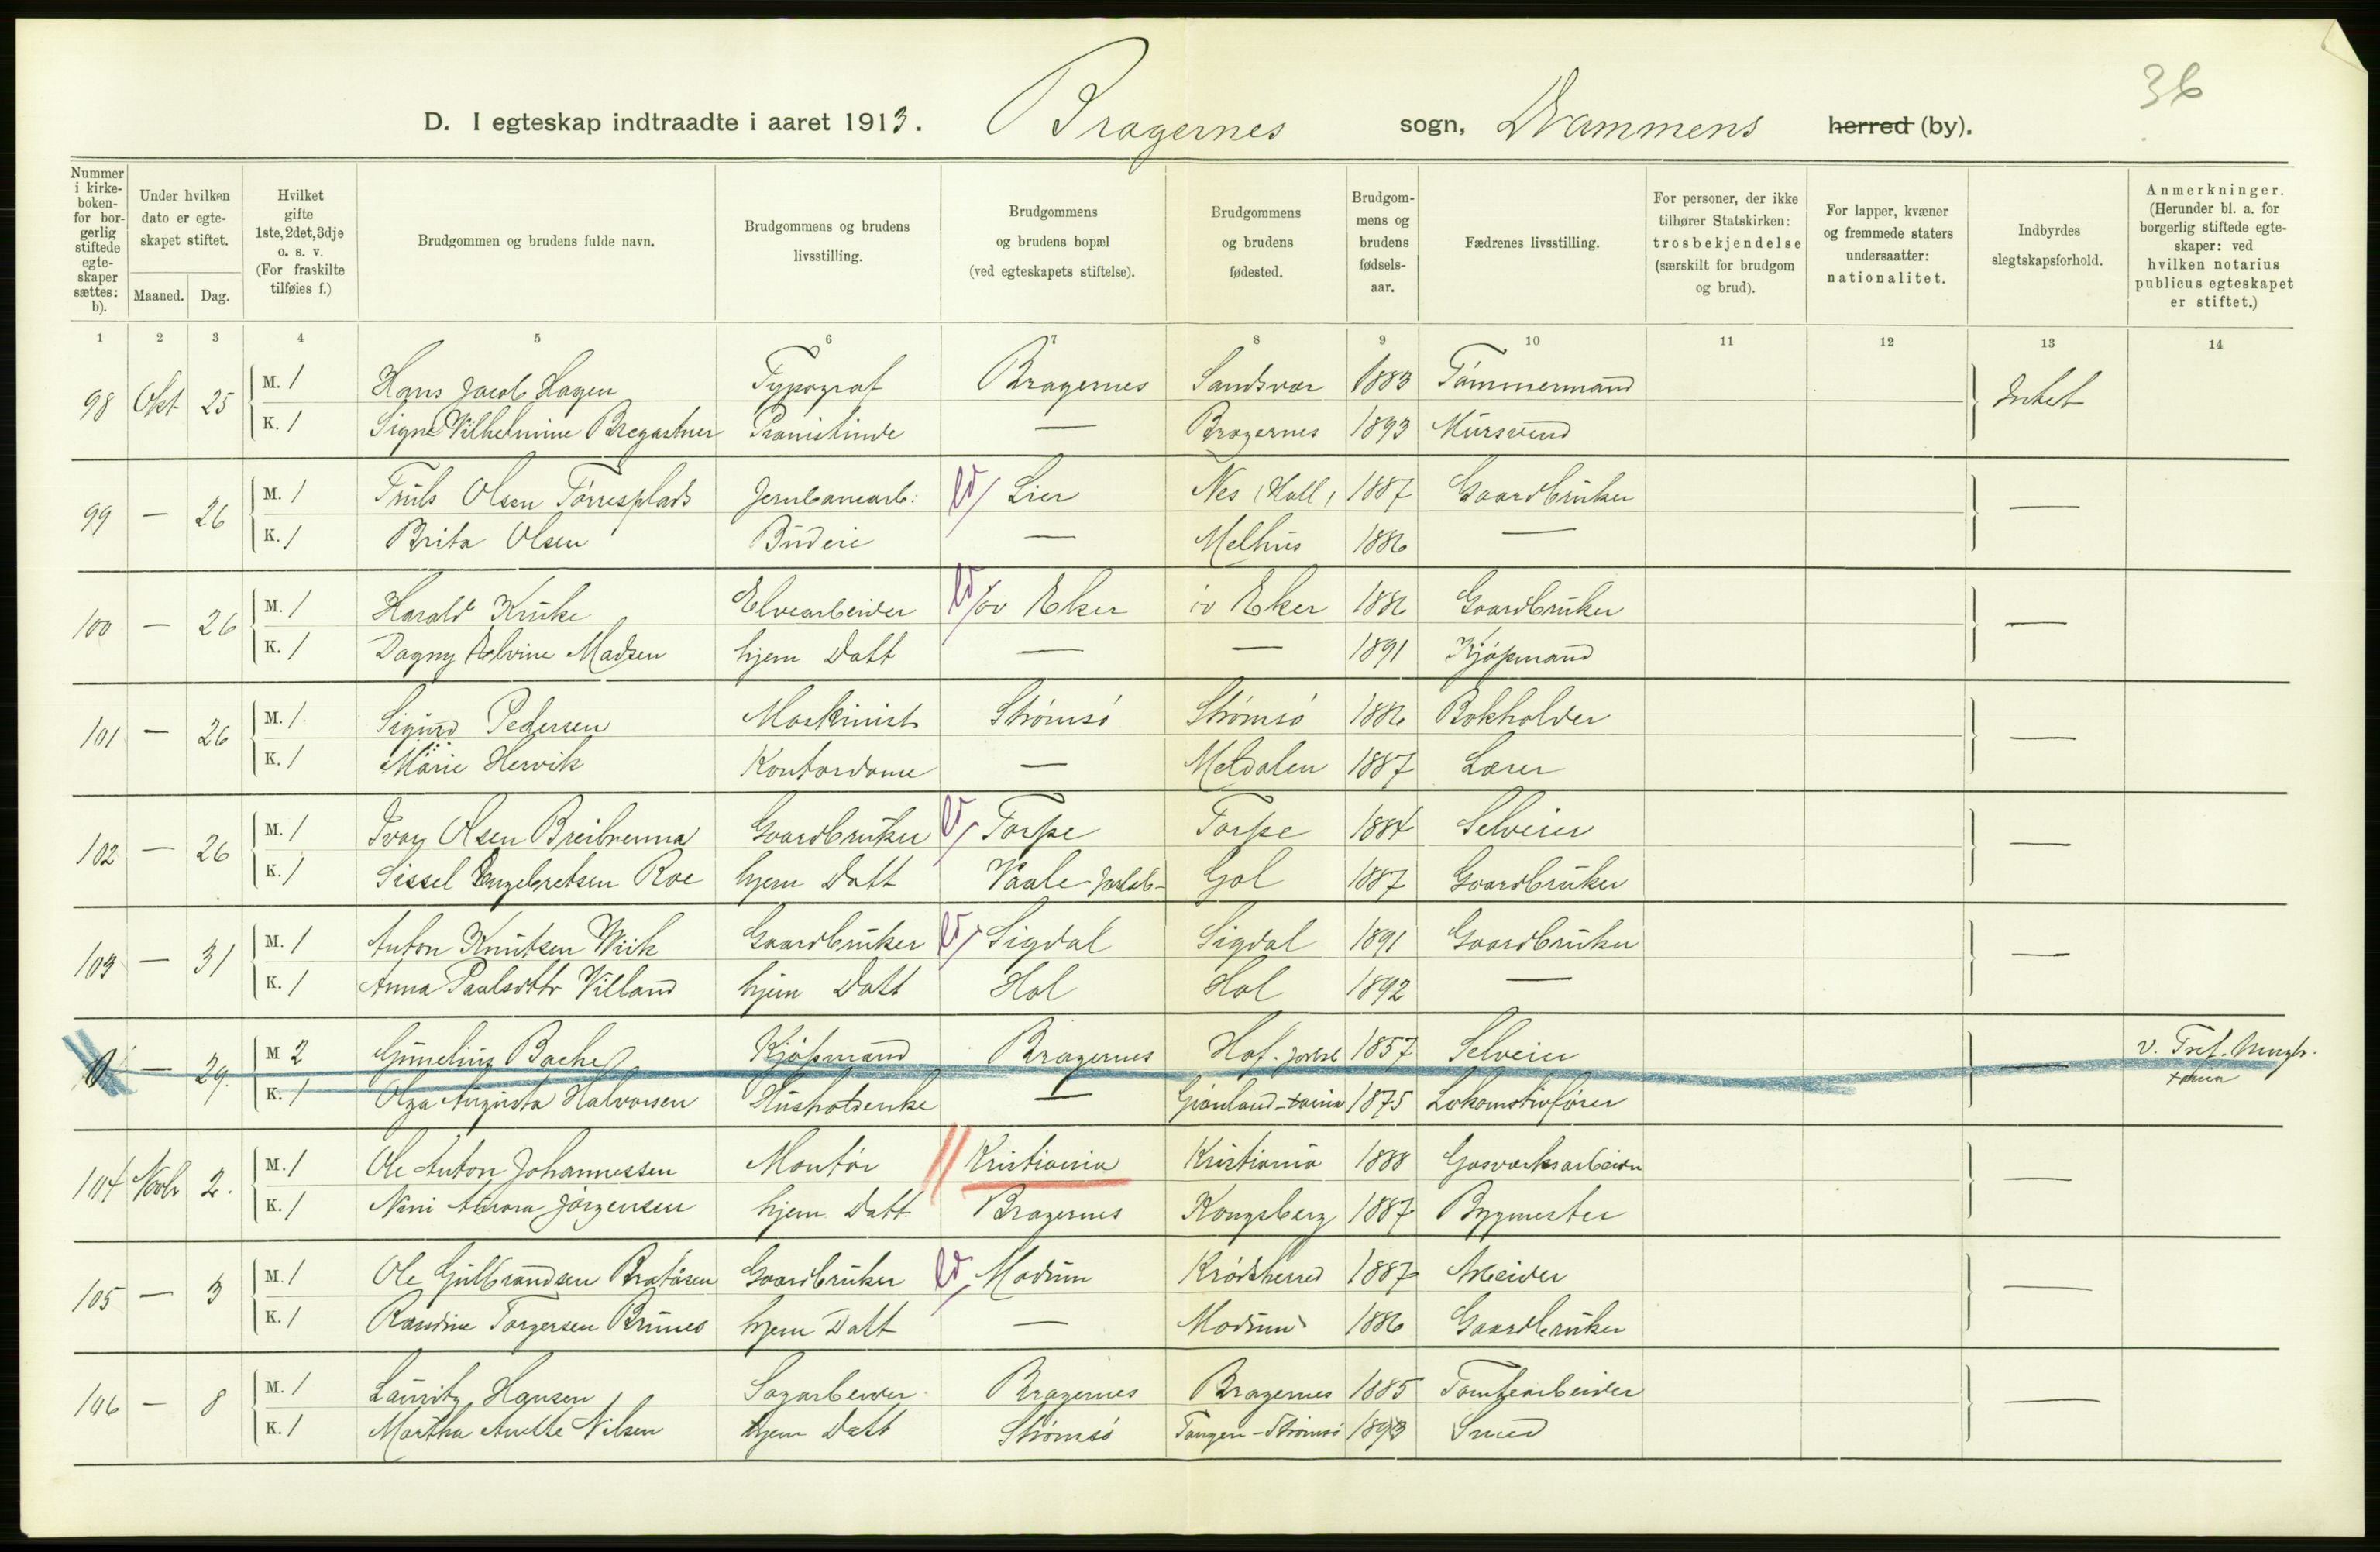 36
D. I egteskap indtraadte i aaret 1913. Bragernes sogn, Drammens herred (by).
Nummer i kirke-boken- for bor-gerlig stiftede egte-skaper sættes: b).
Under hvilken dato er egte-skapet stiftet.
Maaned. Dag.
Hvilket gifte 1ste, 2det, 3dje o. s. v. (For fraskilte tilføies f.)
Brudgommen og brudens fulde navn.
Brudgommens og brudens livsstilling.
Brudgommens og brudens bopæl (ved egteskapets stiftelse).
Brudgommens og brudens fødested.
Brudgom-mens og brudens fødsels-aar.
Fædrenes livsstilling.
For personer, der ikke tilhører Statskirken: trosbekjendelse (særskilt for brudgom og brud).
For lapper, kvæner og fremmede staters undersaatter: nationalitet.
Indbyrdes slegtskapsforhold.
Anmerkninger. (Herunder bl. a. for borgerlig stiftede egte-skaper: ved hvilken notarius publicus egteskapet er stiftet.)
1 2 3 4 5 6 7 8 9 10 11 12 13 14
98 Okt 25 M. 1 Hans Jacob Hagen Typograf Bragernes Sandsvær 1883 Tømmermand Intet
K. 1 Signe Vilhelmine Bregartner Pianistinde — Bragernes 1893 Mursvend
99 — 26 M. 1 Truls Olsen Tørresplads Jernbanearb: Lier Nes (Hall) 1887 Gaardbruker —
K. 1 Brita Olsen Budeie — Melhus 1886 —
100 — 26 M. 1 Harald Kruke Elvearbeider øv Eker øv Eker 1886 Gaardbruker —
K. 1 Dagny Helvine Madsen hjem Datt — — 1891 Kjøpmand
101 — 26 M. 1 Sigurd Pedersen Maskinist Strømsø Strømsø 1886 Bokholder —
K. 1 Marie Hervik Kontordame — Meldalen 1887 Lærer
102 — 26 M. 1 Ivar Olsen Breibrenna Gaardbruker Torpe Torpe 1884 Selveier —
K. 1 Sissel Engebretsen Roe hjem Datt Vaale Jarlsb- Gol 1887 Gaardbruker
103 — 31 M. 1 Anton Knutsen Wiik Gaardbruker Sigdal Sigdal 1891 Gaardbruker —
K. 1 Anna Paalsdttr Villand hjem Datt Hol Hol 1892 —
— 29. M 2 Gunelius Bache Kjøpmand Bragernes Hof. Jarlsb 1857 Selveier — v. Tref. Mengh.
K. 1 Olga Augusta Halvorsen Husholderske — Grønland - xania 1875 Lokomotivfører xania
104 Novbr 2. M. 1 Ole Anton Johannessen Montør Kristiania Kristiania 1888 Gasværksarbeider —
K. 1 Nini Aurora Jørgensen hjem Datt Bragernes Kongsberg 1887 Bygmester
105 — 3 M. 1 Ole Gulbrandsen Bratåsen Gaardbruker Modum Krødsherred 1887 Arbeider —
K. 1 Randine Torgersen Brunes hjem Datt — Modum 1886 Gaardbruker
106 — 8 M. 1 Lauritz Hansen Sagarbeider Bragernes Bragernes 1885 Tomtearbeider —
K. 1 Martha Anette Nilsen hjem Datt Strømsø Tangen - Strømsø 1893 Smed